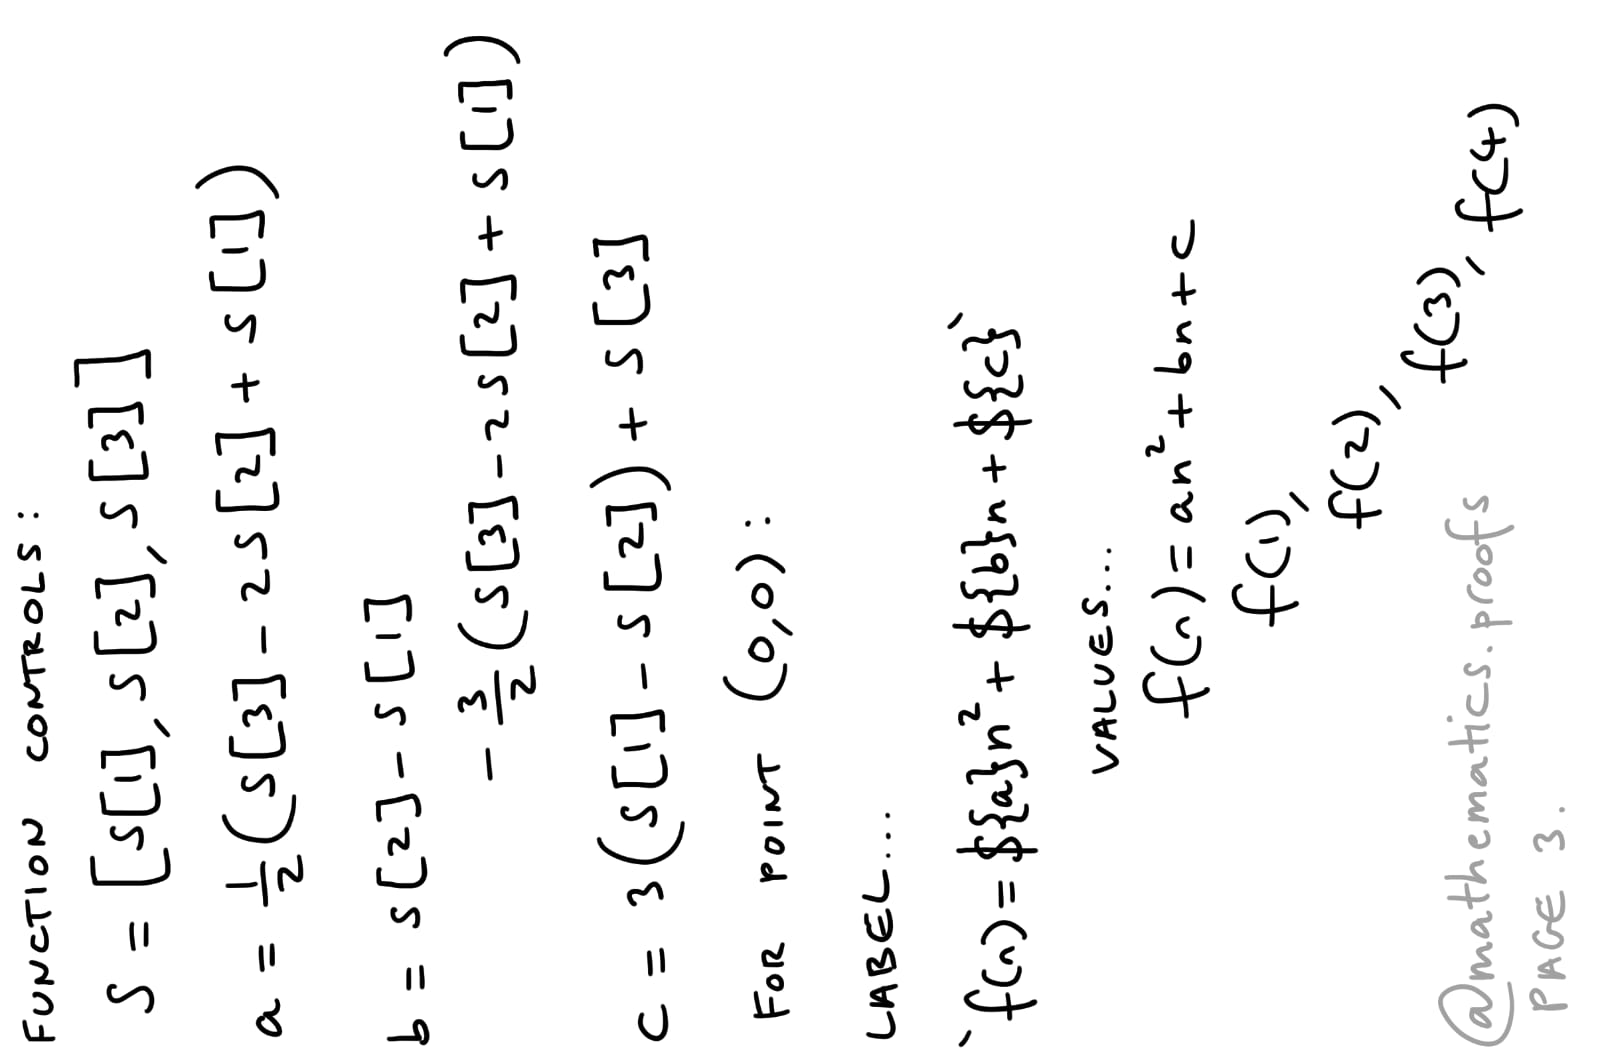 FUNCTION CONTROLS:
S = [S[1], S[2], S[3]]
a = 1/2 (S[3] - 2S[2] + S[1])
b = S[2] - S[1]
- 3/2 (S[3] - 2S[2] + S[1])
c = 3(S[1] - S[2]) + S[3]
FOR POINT (0,0):
LABEL...
`f(n) = ${a}n² + ${b}n + ${c}`
VALUES...
f(n) = an² + bn + c
f(1),
f(2),
f(3),
f(4)
@mathematics.proofs
PAGE 3.